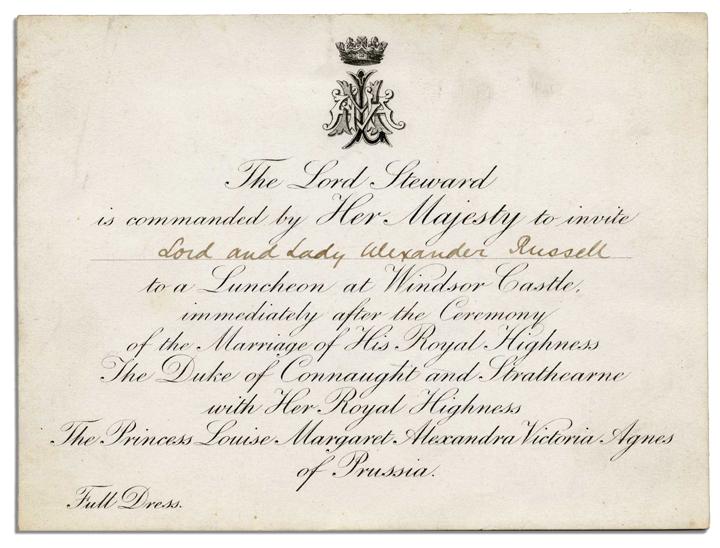 The Lord Steward
is commanded by Her Majesty to invite
Lord and Lady Alexander Russell
to a Luncheon at Windsor Castle,
immediately after the Ceremony
of the Marriage of His Royal Highness
The Duke of Connaught and Strathearne
with Her Royal Highness
The Princess Louise Margaret Alexandra Victoria Agnes
of Prussia.
Full Dress.